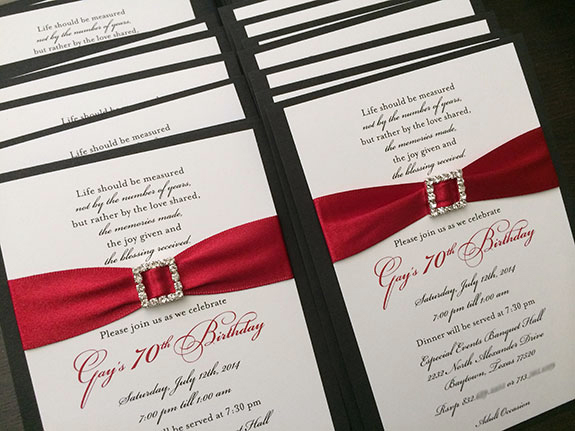 Life should be measured
not by the number of years,
but rather by the love shared.
Life should be measured
Life should be measured
Life should be measured
not by the number of years,
but rather by the love shared,
the memories made,
the joy given and
the blessing received.
Please join us as we celebrate
Gay's 70th Birthday
Saturday, July 12th, 2014
7:00 pm till 1:00 am
Dinner will be served at 7:30 pm
Life should be measured
not by the number of years,
but rather by the love shared,
the memories made,
the joy given and
the blessing received.
Please join us as we celebrate
Gay's 70th Birthday
Saturday, July 12th, 2014
7:00 pm till 1:00 am
Dinner will be served at 7:30 pm
Especial Events Banquet Hall
2232 North Alexander Drive
Baytown, Texas 77520
Rsvp 832. or 713.
Adult Occasion